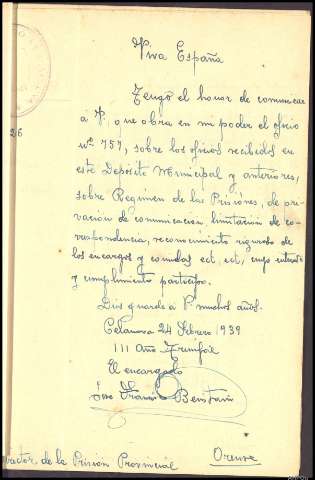 Viva España
Tengo el honor de comunicar
á V, que obra en mi poder el oficio
26
nº 757, sobre los oficios recibidos en
este Depósito Municipal y anteriores,
sobre Regimen de las Prisiones, de pri-
vacion de comunicacion, limitación de co-
rrespondencia, reconocimiento riguroso de
los encargos y comidas ect, ect, cuyo
y cumplimiento participo.
Dios guarde á V muchos años.
Celanova 24 Febrero 939
III Año Triunfal
El encargado
de la Prisión Provincial Orense